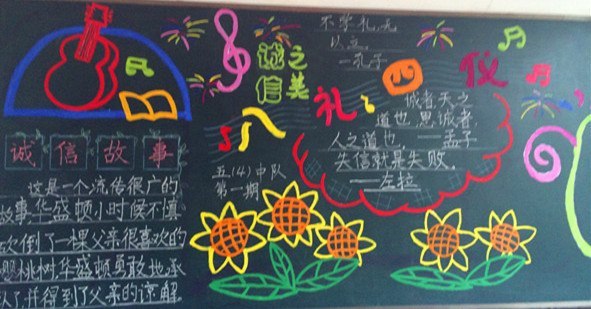 诚信之美
不学礼,无
以立。
—孔子
礼仪
诚者,天之
道也,思诚者
人之道也。—孟子
失信就是失败。
——左拉
五(4)中队
第一期
诚信故事
这是一个流传很广的
故事华盛顿小时候不慎
砍倒了一棵父亲很喜欢的
樱桃树华盛顿勇敢地承
认了,并得到了父亲的谅解.